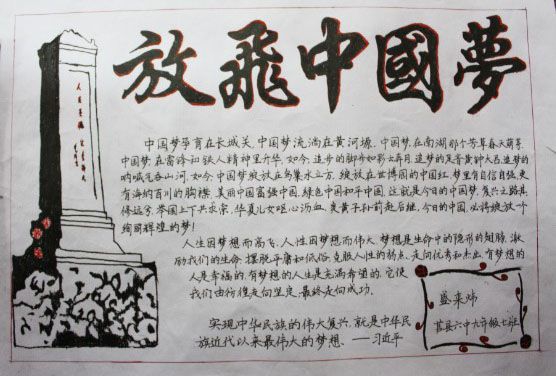 放飛中國夢
人民英雄
中国梦孕育在长城关,中国梦流淌在黄河壖.中国梦,在南湖那个芳草春天萌芽.
中国梦,在雷锋和铁人精神里升华.如今,追步的脚步如影应舞月.追梦的足音黄钟大吕.追梦的
呐喊气吞山河.如今,中国梦绽放在鸟巢水立方.绽放在世博园的中国红.梦里有自信自强.更
有海纳百川的胸襟.美丽中国富强中国.绿色中国和平中国.这就是今日的中国梦.复兴之路其
修远兮.举国上下共求索.华夏儿女呕心沥血.炎黄子孙前赴后继.今日的中国.必将绽放一个
绚丽辉煌的梦!
人生因梦想而高飞.人性因梦想而伟大.梦想是生命中的隐形的翅膀.激
励我们的生命.摆脱平庸和低俗.克服人性的弱点.走向优秀和杰出.有梦想的
人是幸福的.有梦想的人生是充满希望的.它使
我们由彷徨走向坚定.最终走向成功.
实现中华民族的伟大复兴.就是中华民
族近代以来最伟大的梦想.——习近平
盛来炜
莒县六中九年级七班